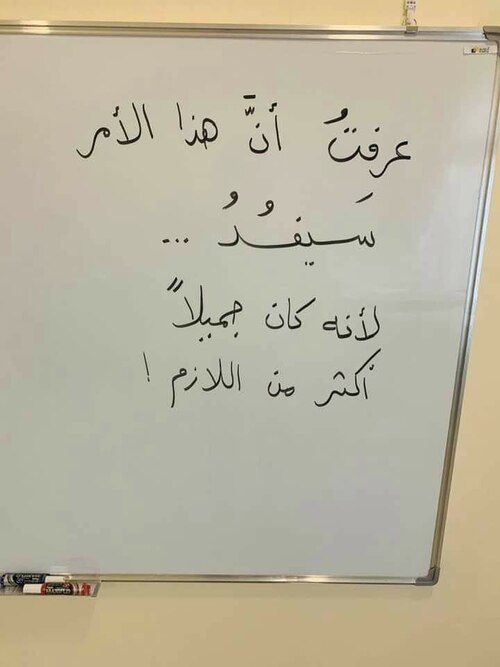 عرفتُ أنَّ هذا الأمر
سَيفُدُ ...
لأنه كان جميلاً
أكثر من اللازم !